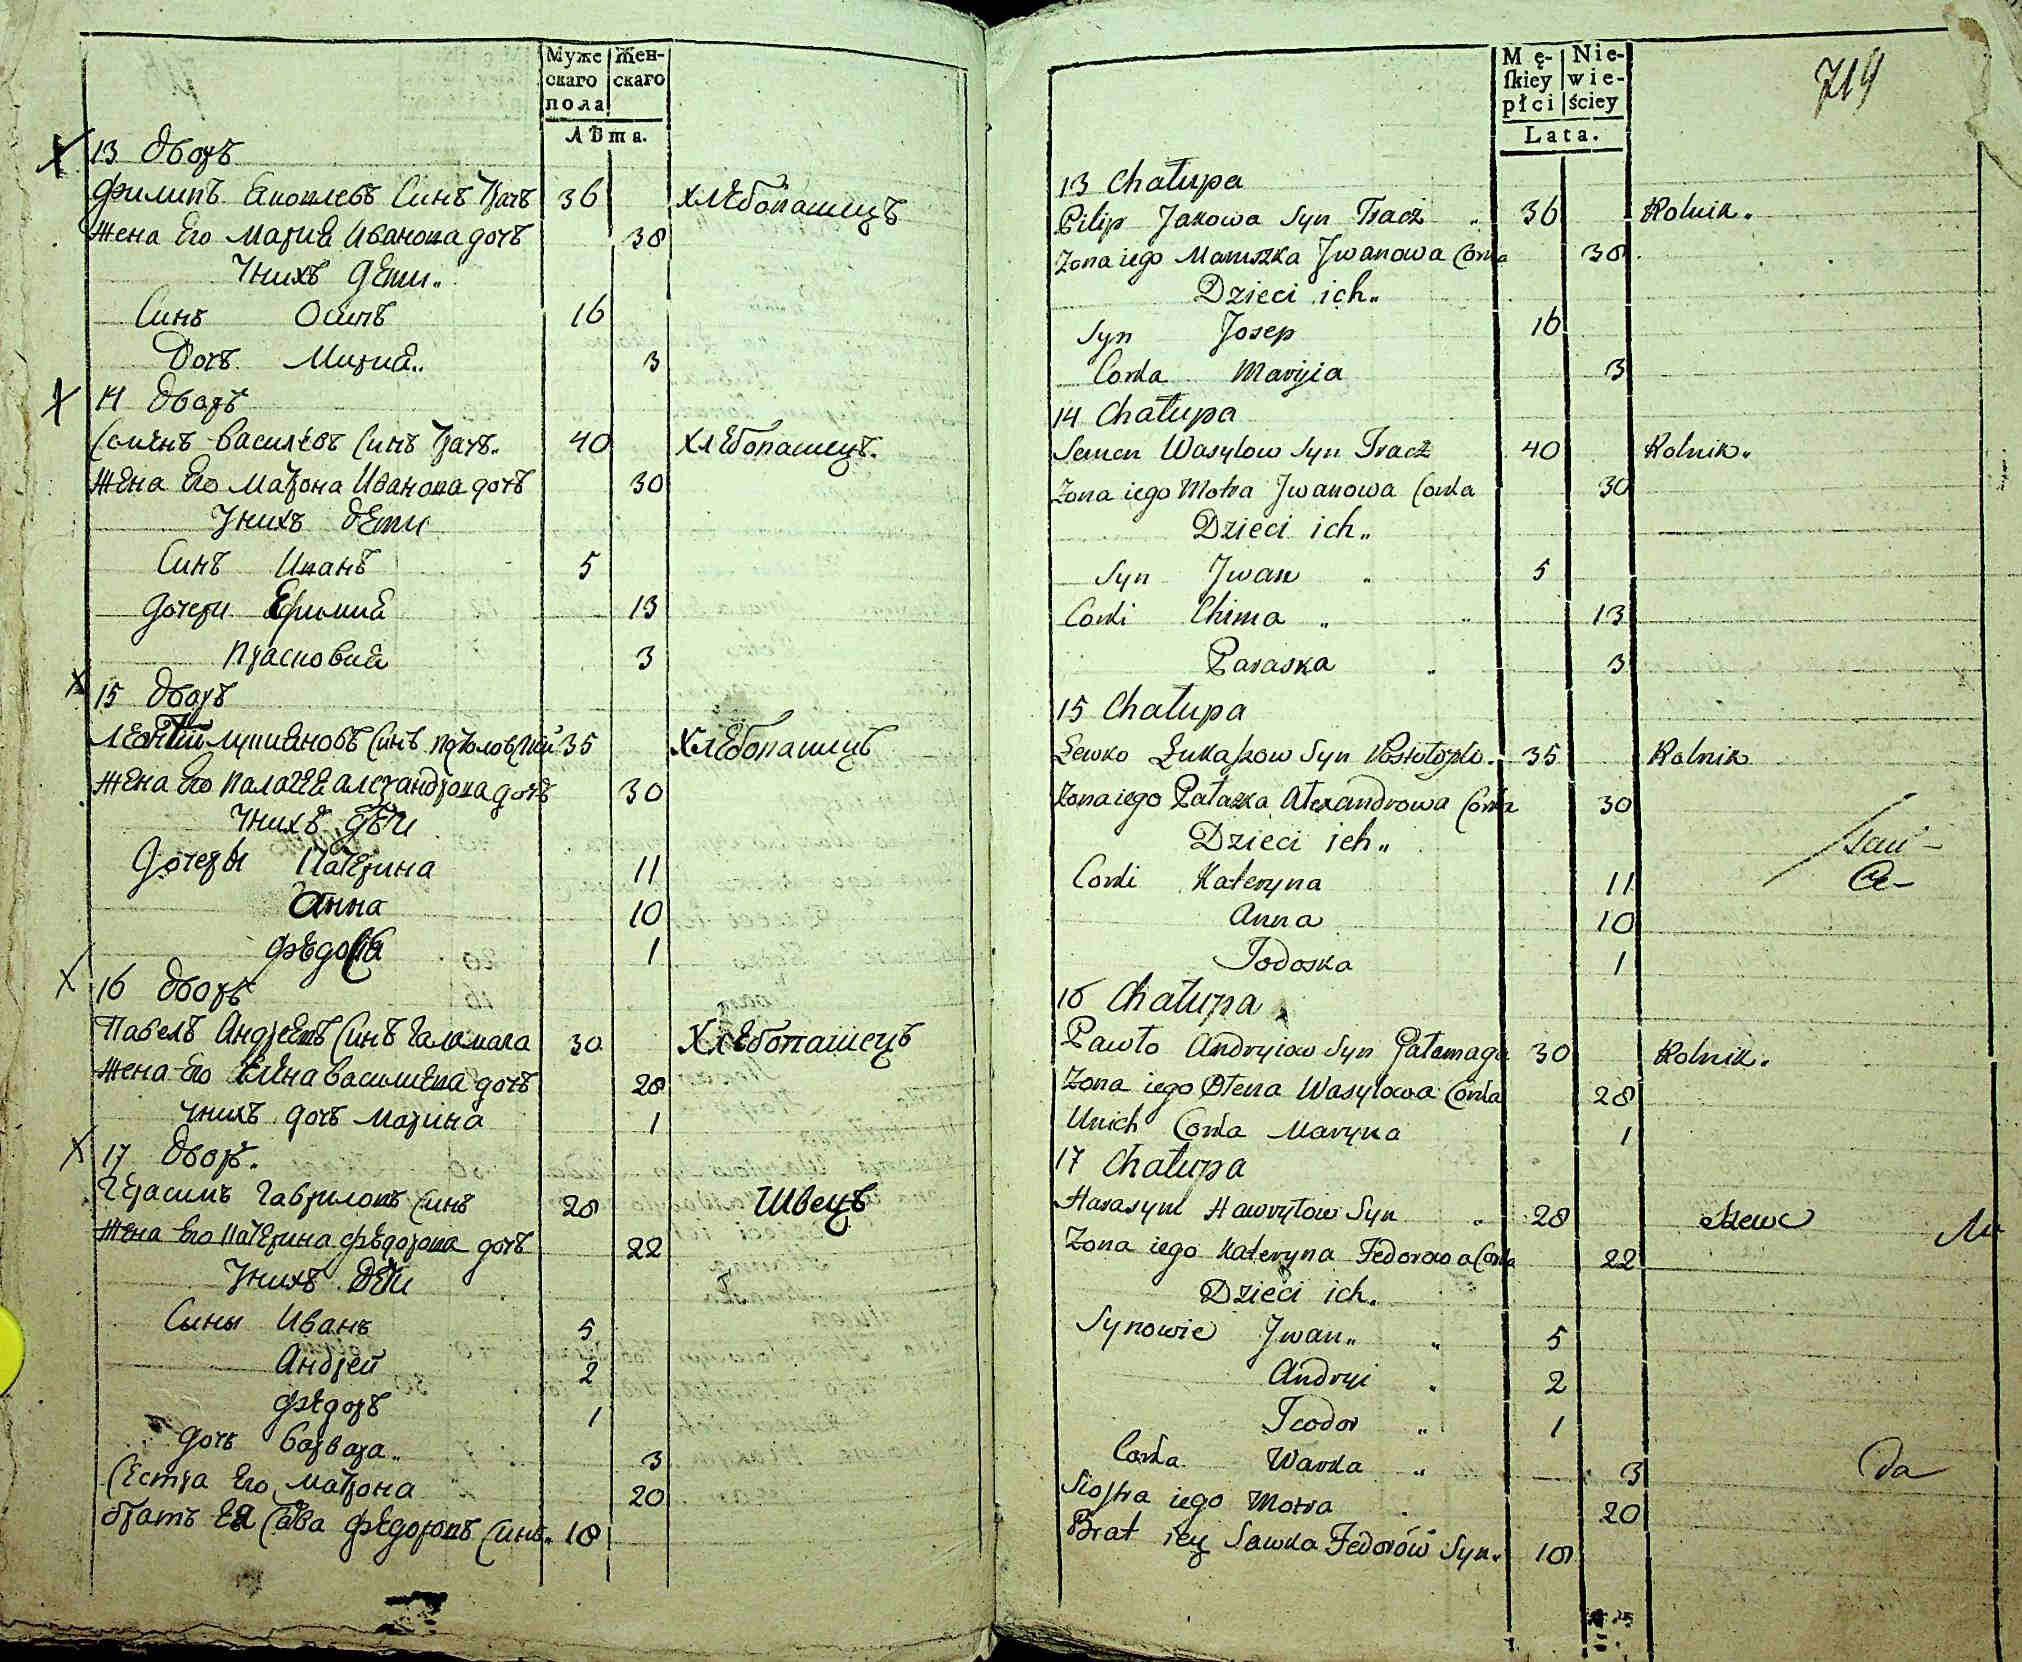 Муже скаго пола
Женскаго
Лѣта.
13 дворъ
Филипъ Яковлевъ Синъ Ткачъ 36 хлѣбопашецъ
Жена его Марія Иванова дочъ 38
Унихъ дети
Синъ Осипъ 16
Дочъ Марія 3
14 дворъ
Семенъ василѣвъ Синъ Ткачъ. 40 хлѣбопашецъ.
Жена его Матрона Иванова дочъ 30
Унихъ дети
Синъ Иванъ 5
дочери Ефимия 13
Прасковия 3
15 дворъ
Леонтий Лукияновъ Синъ 35 хлѣбопашецъ
Жена его Палагея александрова дочъ 30
Унихъ дѣти
Дочеры Катерина 11
Анна 10
Федося 1
16 дворъ
Павелъ Андреевъ Синъ Галамага 30 Хлѣбопашецъ
Жена его Елена василиева дочъ 28
Унихъ дочъ Марина 1
17 дворъ.
Герасимъ Гаврыловъ Синъ 28 Швецъ
Жена его Катерина Федорова дочъ 22
Унихъ Дети
Сыны Иванъ 5
Андрей 2
Федоръ 1
дочъ варвара 3
Сестра его Матрона 20
братъ ея Сава Федоровъ Синъ. 18
719
Męſkiey płci
Niewieściey
Lata.
13 Chałupa
Pilip Jakowa Syn Tkacz 36 Rolnik.
Zona iego Maruszka Jwanowa Corka 38
Dzieci ich
Syn Josep 16
Corka Maryia 3
14 Chałupa
Semen Wasylow Syn Tkacz 40 Rolnik
Zona iego Motra Jwanowa Corka 30
Dzieci ich
Syn Jwan 5
Corki Chima 13
Paraska 3
15 Chałupa
Lewko Łukaszow Syn 35 Rolnik
Zona iego Pałazka Alexandrowa Corka 30
Dzieci ich
Corki Kateryna 11
Anna 10
Todoska 1
16 Chałupa
Pawło Andryiow Syn Gałamaga 30 Rolnik.
Zona iego Ołena Wasylowa Corka 28
Unich Corka Maryna 1
17 Chałupa
Harasym Hawryłow Syn 28 Szewc
Zona iego Kateryna Fedorowa Corka 22
Dzieci ich
Synowie Jwan 5
Andryi 2
Teodor 1
Corka Warka 3
Siostra iego Motra 20
Brat iey Sawka Fedorów Syn. 18